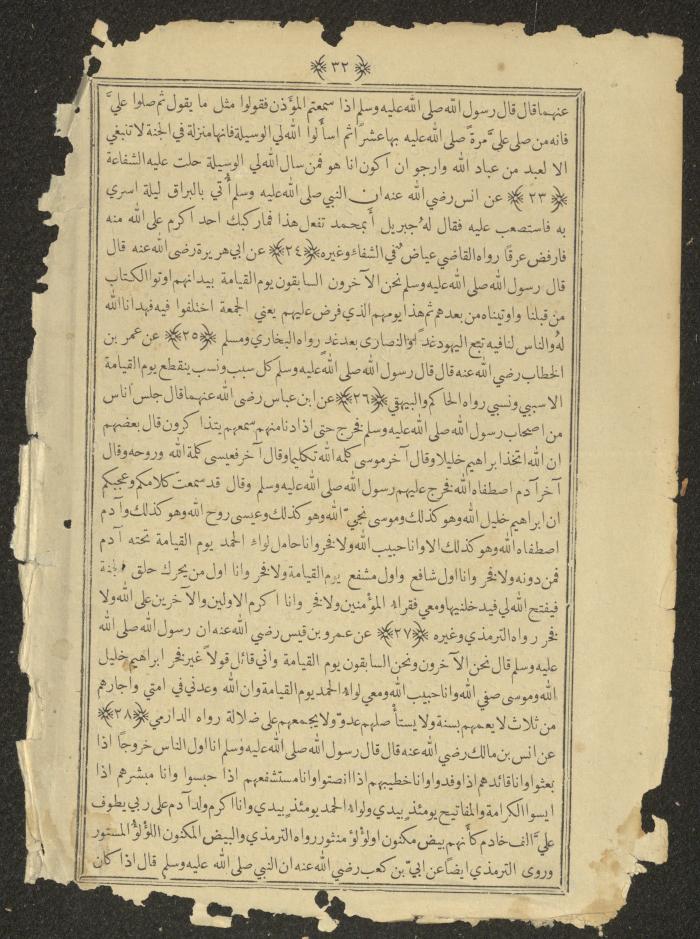 ﴿ ٣٢ ﴾
عنهما قال قال رسول الله صلى الله عليه وسلم اذا سمعتم المؤذن فقولوا مثل ما يقول ثم صلوا عليَّ
فانه من صلى عليَّ مرةً صلى الله عليه بها عشراً ثم اسألوا الله لي الوسيلة فانها منزلة في الجنة لا تنبغي
الا لعبد من عباد الله وارجو ان اكون انا هو فمن سال الله لي الوسيلة حلت عليه الشفاعة
﴿ ٢٣ ﴾ عن انس رضي الله عنه ان النبي صلى الله عليه وسلم أُتي بالبراق ليلة اسري
به فاستصعب عليه فقال لهُ جبريل أَبمحمد تفعل هذا فما ركبك احد اكرم على الله منه
فارفض عرقًا رواه القاضي عياض في الشفاء وغيره ﴿٢٤﴾ عن ابي هريرة رضى الله عنه قال
قال رسول الله صلى الله عليه وسلم نحن الآخرون السابقون يوم القيامة بيد انهم اوتوا الكتاب
من قبلنا واوتيناه من بعدهم ثم هذا يومهم الذي فرض عليهم يعني الجمعة اختلفوا فيه فهدانا الله
لهُ والناس لنا فيه تبع اليهود غدًا والنصارى بعد غد رواه البخاري ومسلم ﴿٢٥﴾ عن عمر بن
الخطاب رضي الله عنه قال قال رسول الله صلى الله عليه وسلم كل سبب ونسب ينقطع يوم القيامة
الا سببي ونسبي رواه الحاكم والبيهقي ﴿٢٦﴾ عن ابن عباس رضى الله عنهما قال جلس اناس
من اصحاب رسول الله صلى الله عليه وسلم فخرج حتى اذا دنا منهم سمعهم يتذاكرون قال بعضهم
ان الله اتخذ ابراهيم خليلا وقال آخر موسى كلمه الله تكليما وقال آخر فعيسى كلمة الله وروحه وقال
آخر آدم اصطفاه الله فخرج عليهم رسول الله صلى الله عليه وسلم وقال قد سمعت كلامكم وعجبكم
ان ابراهيم خليل الله وهو كذلك وموسى نجيّ الله وهو كذلك وعيسى روح الله وهو كذلك وآدم
اصطفاه الله وهو كذلك الا وانا حبيب الله ولا فخر وانا حامل لواء الحمد يوم القيامة تحته آدم
فمن دونه ولا فخر وانا اول شافع واول مشفع يوم القيامة ولا فخر وانا اول من يحرك حلق الجنة
فيفتح الله لي فيدخلنيها ومعي فقراء المؤمنين ولا فخر وانا اكرم الاولين والآخرين على الله ولا
فخر رواه الترمذي وغيره ﴿٢٧﴾ عن عمرو بن قيس رضي الله عنه ان رسول الله صلى الله
عليه وسلم قال نحن الآخرون ونحن السابقون يوم القيامة واني قائل قولاً غير فخر ابراهيم خليل
الله وموسى صفي الله وانا حبيب الله ومعي لواء الحمد يوم القيامة وان الله وعدني في امتي واجارهم
من ثلاث لا يعمهم بسنة ولا يستأصلهم عدوّ ولا يجمعهم على ضلالة رواه الدارمي ﴿٢٨﴾
عن انس بن مالك رضي الله عنه قال قال رسول الله صلى الله عليه وسلم انا اول الناس خروجًا اذا
بعثوا وانا قائدهم اذا وفدوا وانا خطيبهم اذا انصتوا وانا مستشفعهم اذا حبسوا وانا مبشرهم اذا
ايسوا الكرامة والمفاتيح يومئذ بيدي ولواء الحمد يومئذ بيدي وانا اكرم ولد آدم على ربي يطوف
عليَّ الف خادم كأنهم بيض مكنون او لؤلؤ منثور رواه الترمذي والبيض المكنون اللؤلؤ المستور
وروى الترمذي ايضاً عن ابيّ بن كعب رضي الله عنه ان النبي صلى الله عليه وسلم قال اذا كان